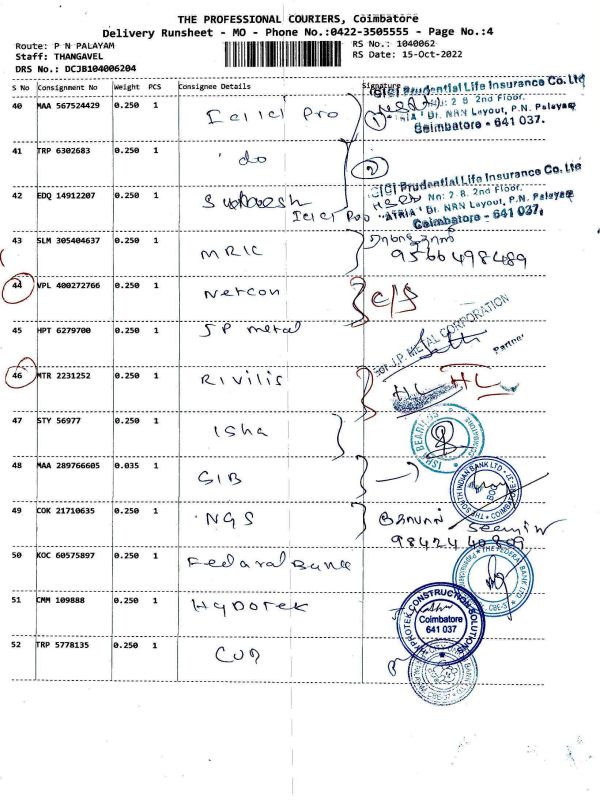 THE PROFESSIONAL COURIERS, Coimbatore
Delivery Runsheet - MO - Phone No.:0422-3505555 - Page No.:4
Route: P N PALAYAM
RS No.: 1040062
Staff: THANGAVEL
RS Date: 15-Oct-2022
DRS No.: DCJB104006204
S No Consignment No Weight PCS Consignee Details Signature
40 MAA 567524429 0.250 1 Icici Pro
ICICI Prudential Life Insurance Co. Ltd
No: 2 B, 2nd Floor,
"ATRIA" Dr. NRN Layout, P.N. Palayam
Coimbatore - 641 037.
1
41 TRP 6302683 0.250 1 do
2
42 EDQ 14912207 0.250 1
Icici Pro
ICICI Prudential Life Insurance Co. Ltd
No: 2 B, 2nd Floor,
"ATRIA" Dr. NRN Layout, P.N. Palayam
Coimbatore - 641 037.
43 SLM 305404637 0.250 1 MRIC
9566498489
44 VPL 400272766 0.250 1 Netcon C/S
45 HPT 6279700 0.250 1 JP metal
For J.P. METAL CORPORATION
Partner
46 MTR 2231252 0.250 1 Rivilis HL HL
47 STY 56977 0.250 1 Isha
48 MAA 289766605 0.035 1 SIB
THE SOUTH INDIAN BANK LTD
49 COK 21710635 0.250 1 NGS
9842440809
50 KOC 60575897 0.250 1 Fedaral Bank
THE FEDERAL BANK LTD
51 CMM 109888 0.250 1 Hyprotek
HYPROTEK CONSTRUCTION SOLUTIONS
Coimbatore
641 037
52 TRP 5778135 0.250 1 CUB